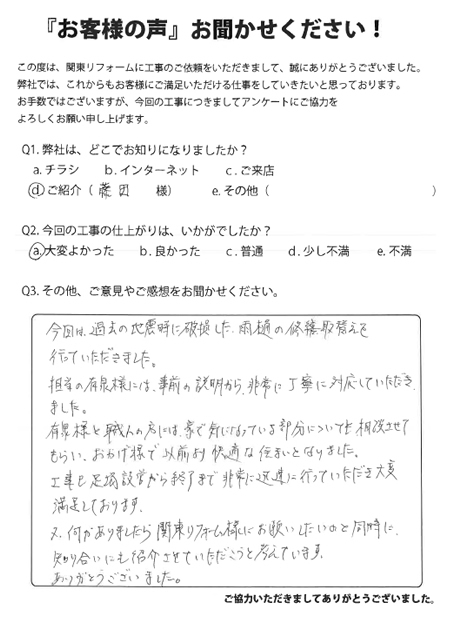 『お客様の声』お聞かせください！
この度は、関東リフォームに工事のご依頼をいただきまして、誠にありがとうございました。
弊社では、これからもお客様にご満足いただける仕事をしていきたいと思っております。
お手数ではございますが、今回の工事につきましてアンケートにご協力を
よろしくお願い申し上げます。
Q1. 弊社は、どこでお知りになりましたか？
a. チラシ　b. インターネット　c. ご来店
d. ご紹介（ 様）　e. その他（　）
Q2. 今回の工事の仕上がりは、いかがでしたか？
a. 大変よかった　b. 良かった　c. 普通　d. 少し不満　e. 不満
Q3. その他、ご意見やご感想をお聞かせください。
今回は、過去の地震時に破損した、雨樋の修繕取替えを
行っていただきました。
担当の有泉様には、事前の説明から、非常に丁寧に対応していただき
ました。
有泉様と職人の方には、家で気になっている部分についても相談させて
もらい、おかげ様で以前より快適な住まいとなりました。
工事も足場設営から終了まで非常に迅速に行っていただき大変
満足しております。
又、何かありましたら関東リフォーム様にお願いしたいのと同時に、
知り合いにも紹介させていただこうと考えています。
ありがとうございました。
ご協力いただきましてありがとうございました。